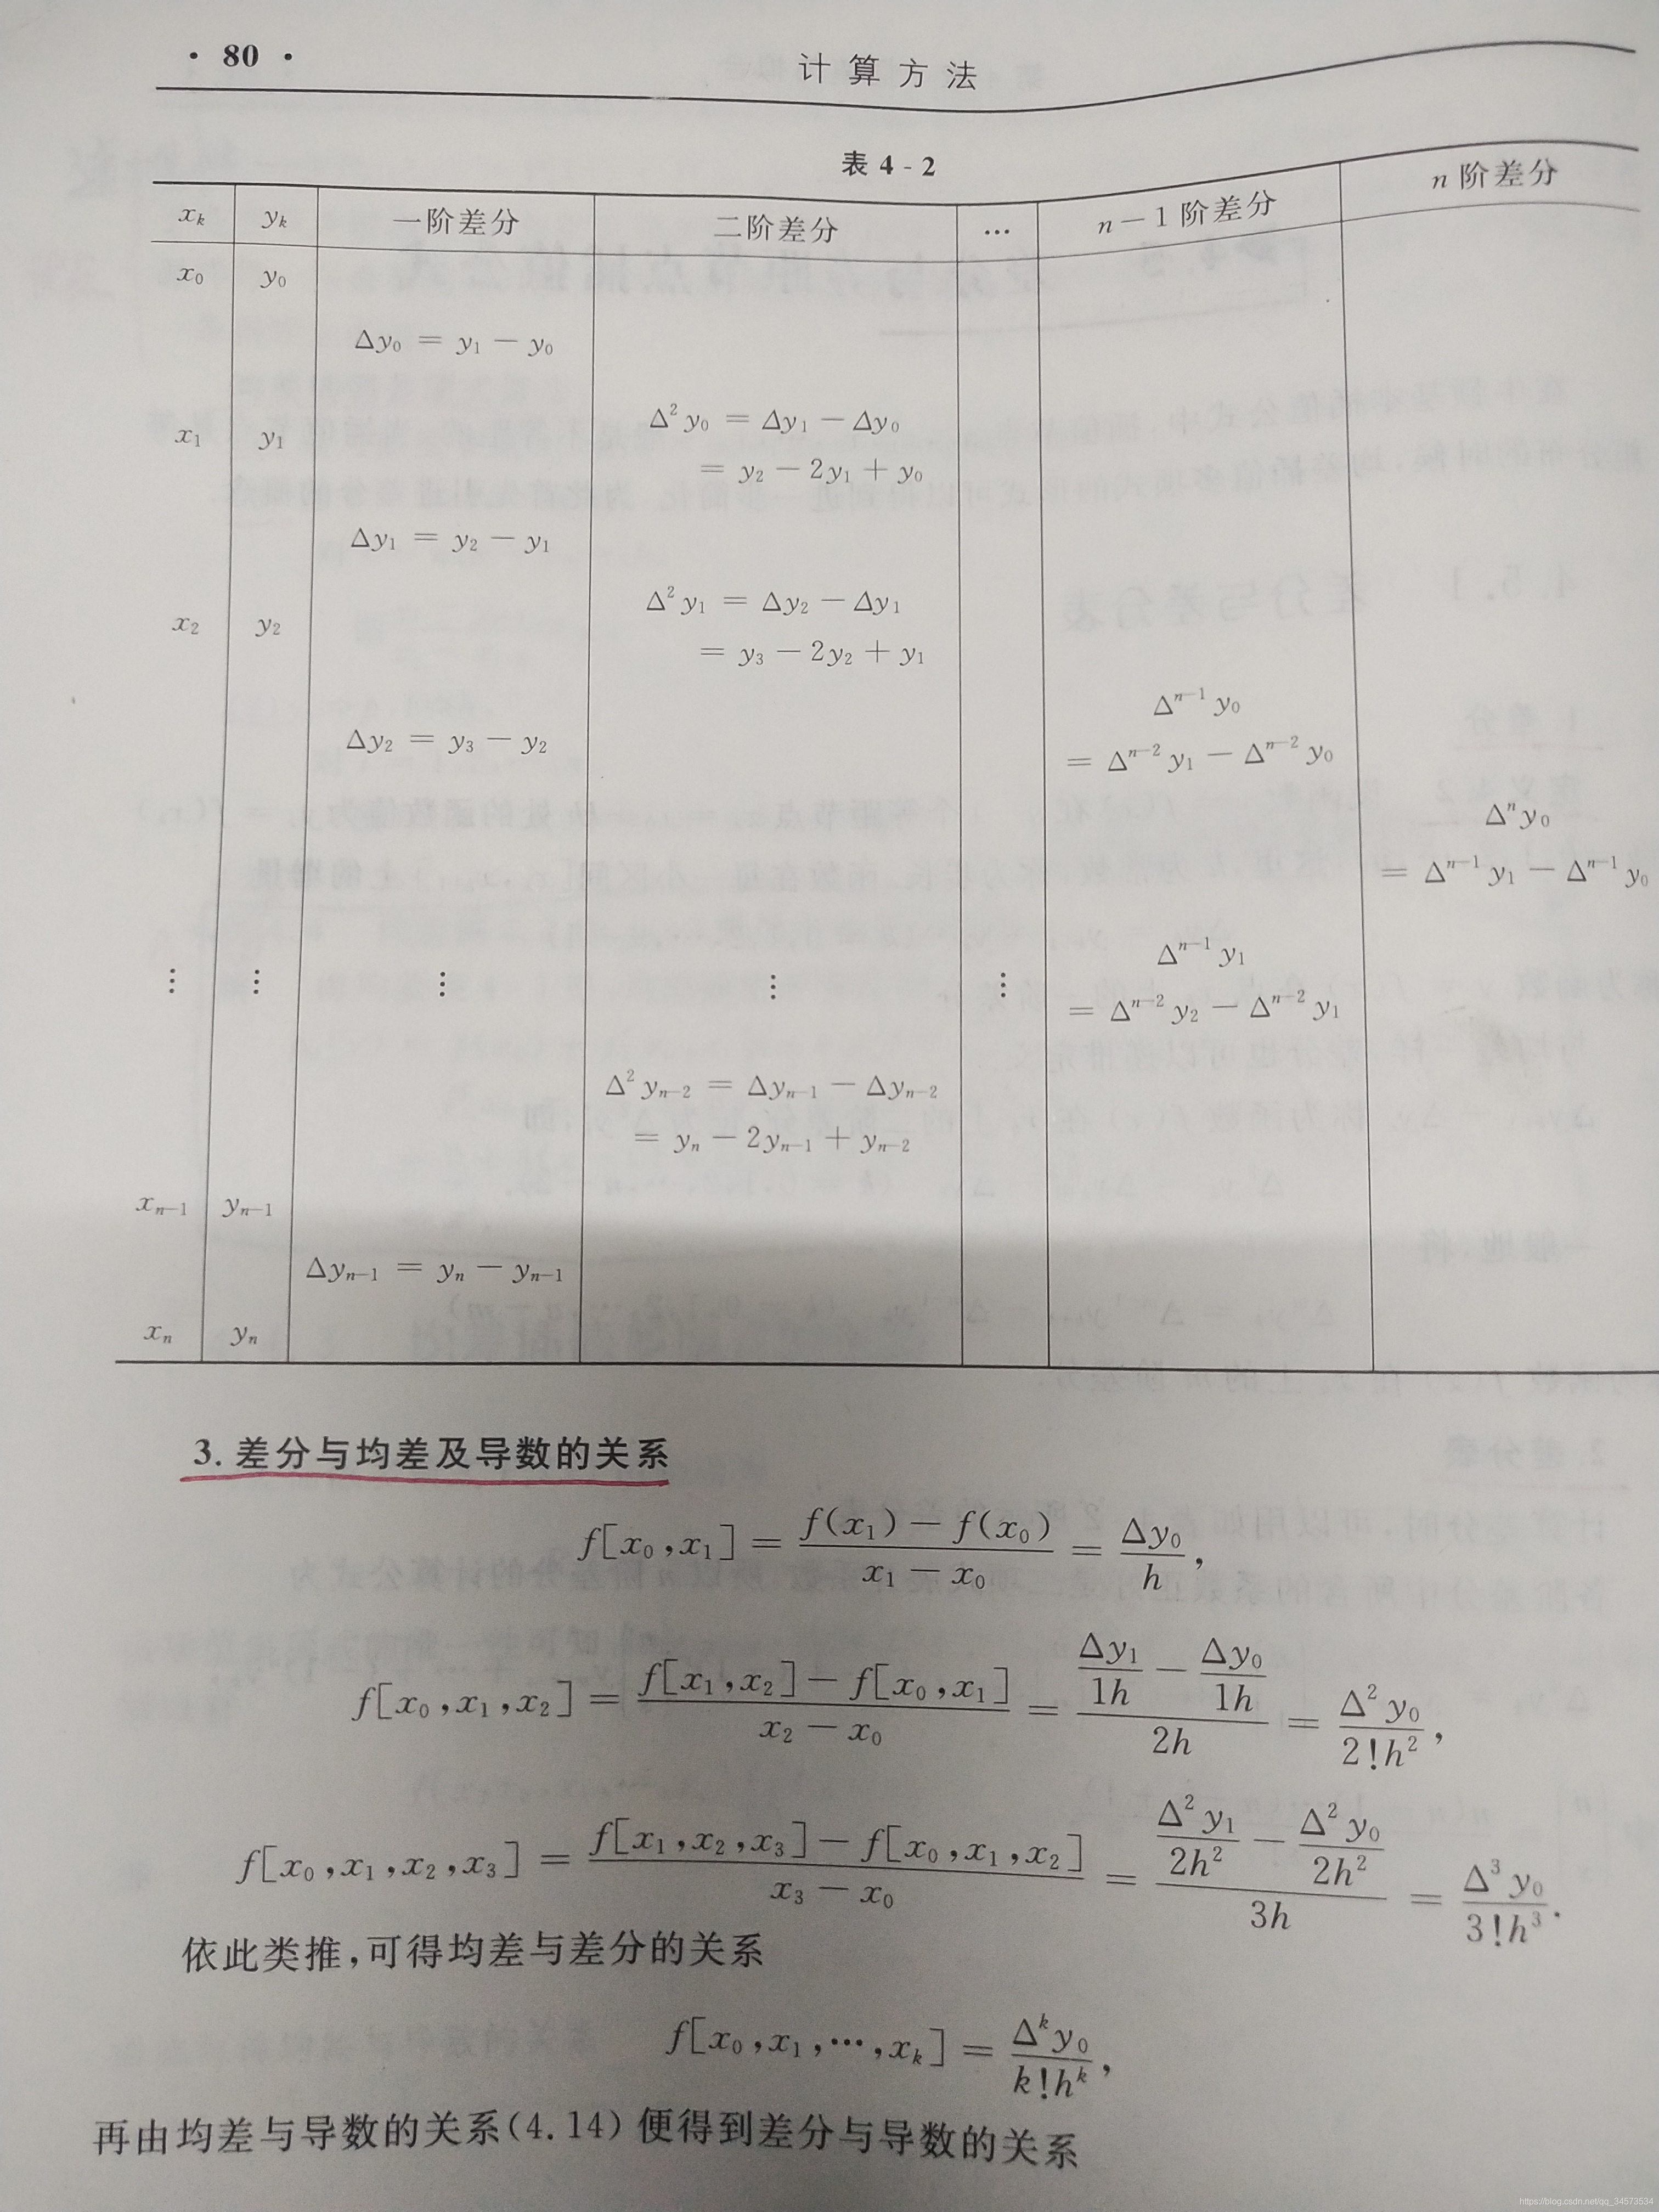 · 80 ·
计算方法
表 4-2
x_k y_k 一阶差分 二阶差分 … n−1 阶差分 n 阶差分
x_0 y_0
Δy_0 = y_1 − y_0
Δ^2 y_0 = Δy_1 − Δy_0
x_1 y_1
= y_2 − 2y_1 + y_0
Δy_1 = y_2 − y_1
Δ^2 y_1 = Δy_2 − Δy_1
x_2 y_2
= y_3 − 2y_2 + y_1
Δ^{n−1} y_0
Δy_2 = y_3 − y_2
= Δ^{n−2} y_1 − Δ^{n−2} y_0
Δ^n y_0
= Δ^{n−1} y_1 − Δ^{n−1} y_0
Δ^{n−1} y_1
⋮ ⋮ ⋮ ⋮ ⋮
= Δ^{n−2} y_2 − Δ^{n−2} y_1
Δ^2 y_{n−2} = Δy_{n−1} − Δy_{n−2}
= y_n − 2y_{n−1} + y_{n−2}
x_{n−1} y_{n−1}
Δy_{n−1} = y_n − y_{n−1}
x_n y_n
3. 差分与均差及导数的关系
f[x_0,x_1] = \frac{f(x_1) − f(x_0)}{x_1 − x_0} = \frac{Δy_0}{h},
f[x_0,x_1,x_2] = \frac{f[x_1,x_2] − f[x_0,x_1]}{x_2 − x_0} = \frac{\frac{Δy_1}{1h} − \frac{Δy_0}{1h}}{2h} = \frac{Δ^2 y_0}{2!h^2},
f[x_0,x_1,x_2,x_3] = \frac{f[x_1,x_2,x_3] − f[x_0,x_1,x_2]}{x_3 − x_0} = \frac{\frac{Δ^2 y_1}{2h^2} − \frac{Δ^2 y_0}{2h^2}}{3h} = \frac{Δ^3 y_0}{3!h^3}.
依此类推,可得均差与差分的关系
f[x_0,x_1,⋯,x_k] = \frac{Δ^k y_0}{k!h^k},
再由均差与导数的关系(4.14)便得到差分与导数的关系
https://blog.csdn.net/qq_34573534